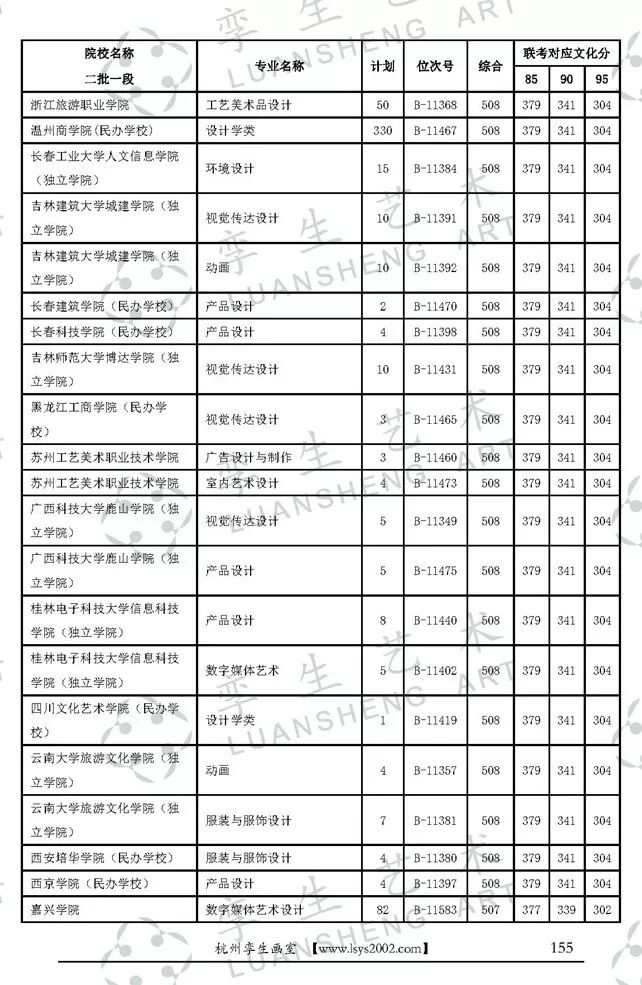 院校名称
二批一段 专业名称 计划 位次号 综合 联考对应文化分
85 90 95
浙江旅游职业学院 工艺美术品设计 50 B-11368 508 379 341 304
温州商学院(民办学校) 设计学类 330 B-11467 508 379 341 304
长春工业大学人文信息学院
（独立学院） 环境设计 15 B-11384 508 379 341 304
吉林建筑大学城建学院（独
立学院） 视觉传达设计 10 B-11391 508 379 341 304
吉林建筑大学城建学院（独
立学院） 动画 10 B-11392 508 379 341 304
长春建筑学院（民办学校） 产品设计 2 B-11470 508 379 341 304
长春科技学院（民办学校） 产品设计 4 B-11398 508 379 341 304
吉林师范大学博达学院（独
立学院） 视觉传达设计 10 B-11431 508 379 341 304
黑龙江工商学院（民办学
校） 视觉传达设计 3 B-11465 508 379 341 304
苏州工艺美术职业技术学院 广告设计与制作 3 B-11460 508 379 341 304
苏州工艺美术职业技术学院 室内艺术设计 4 B-11473 508 379 341 304
广西科技大学鹿山学院（独
立学院） 视觉传达设计 5 B-11349 508 379 341 304
广西科技大学鹿山学院（独
立学院） 产品设计 5 B-11475 508 379 341 304
桂林电子科技大学信息科技
学院（独立学院） 产品设计 8 B-11440 508 379 341 304
桂林电子科技大学信息科技
学院（独立学院） 数字媒体艺术 5 B-11402 508 379 341 304
四川文化艺术学院（民办学
校） 设计学类 1 B-11419 508 379 341 304
云南大学旅游文化学院（独
立学院） 动画 4 B-11357 508 379 341 304
云南大学旅游文化学院（独
立学院） 服装与服饰设计 7 B-11381 508 379 341 304
西安培华学院（民办学校） 服装与服饰设计 4 B-11380 508 379 341 304
西京学院（民办学校） 产品设计 4 B-11397 508 379 341 304
嘉兴学院 数字媒体艺术设计 82 B-11583 507 377 339 302
杭州孪生画室 【www.lsys2002.com】 155
孪生艺术
LUANSHENG ART
孪生艺术
LUANSHENG ART
孪生艺术
LUANSHENG ART
孪生艺术
LUANSHENG ART
孪生艺术
LUANSHENG ART